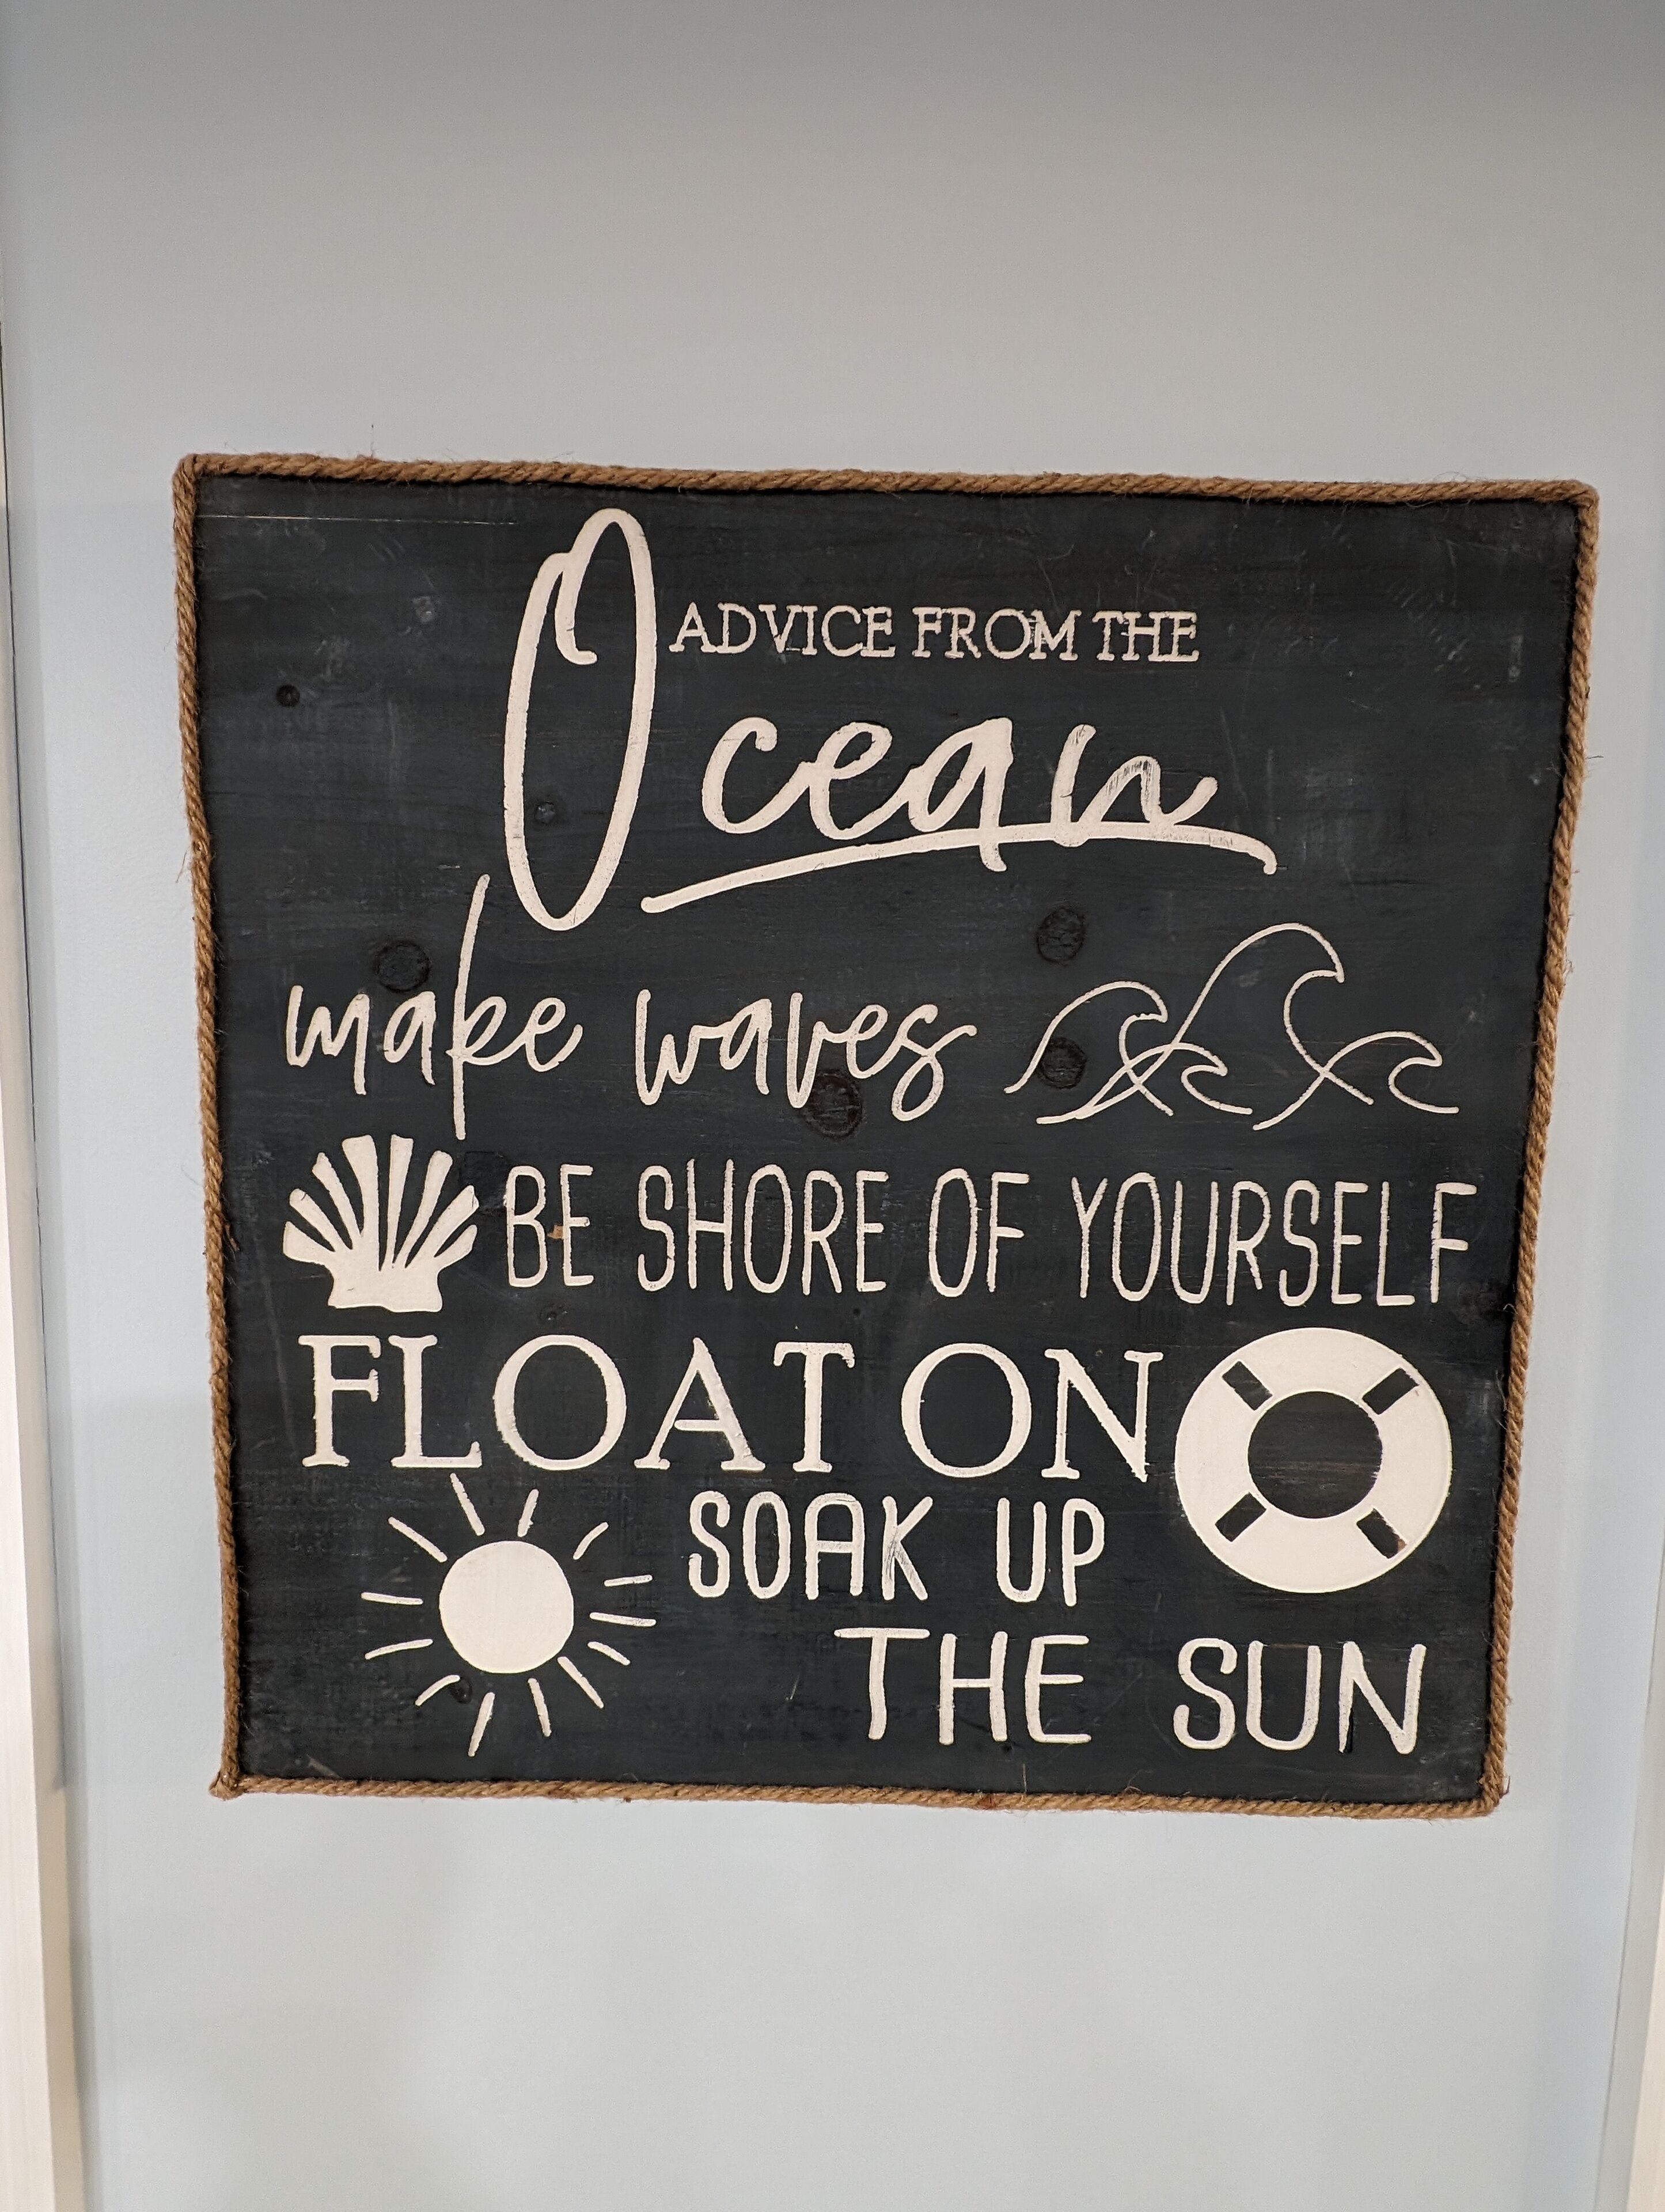 ADVICE FROM THE
Ocean
make waves
BE SHORE OF YOURSELF
FLOAT ON
SOAK UP
THE SUN